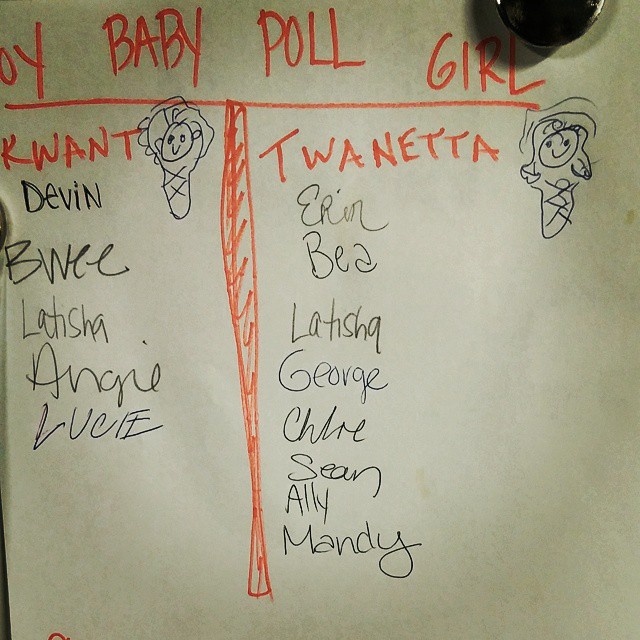 OY BABY POLL GIRL
KWANT TWANETTA
Devin Erin
Bwee Bea
Latisha Latisha
Angie George
LUCIE Chloe
Sean
Ally
Mandy